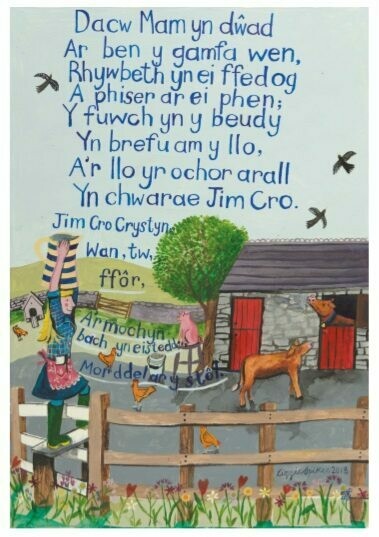 Dacw Mam yn dŵad
Ar ben y gamfa wen,
Rhywbeth yn ei ffedog
A phiser ar ei phen;
Y fuwch yn y beudy
Yn brefu am y llo,
A'r llo yr ochor arall
Yn chwarae Jim Cro.
Jim Cro Crystyn,
Wan, tw,
ffôr,
A'r mochyn
bach yn eistedd
Mor ddel ar y stôl.
2018